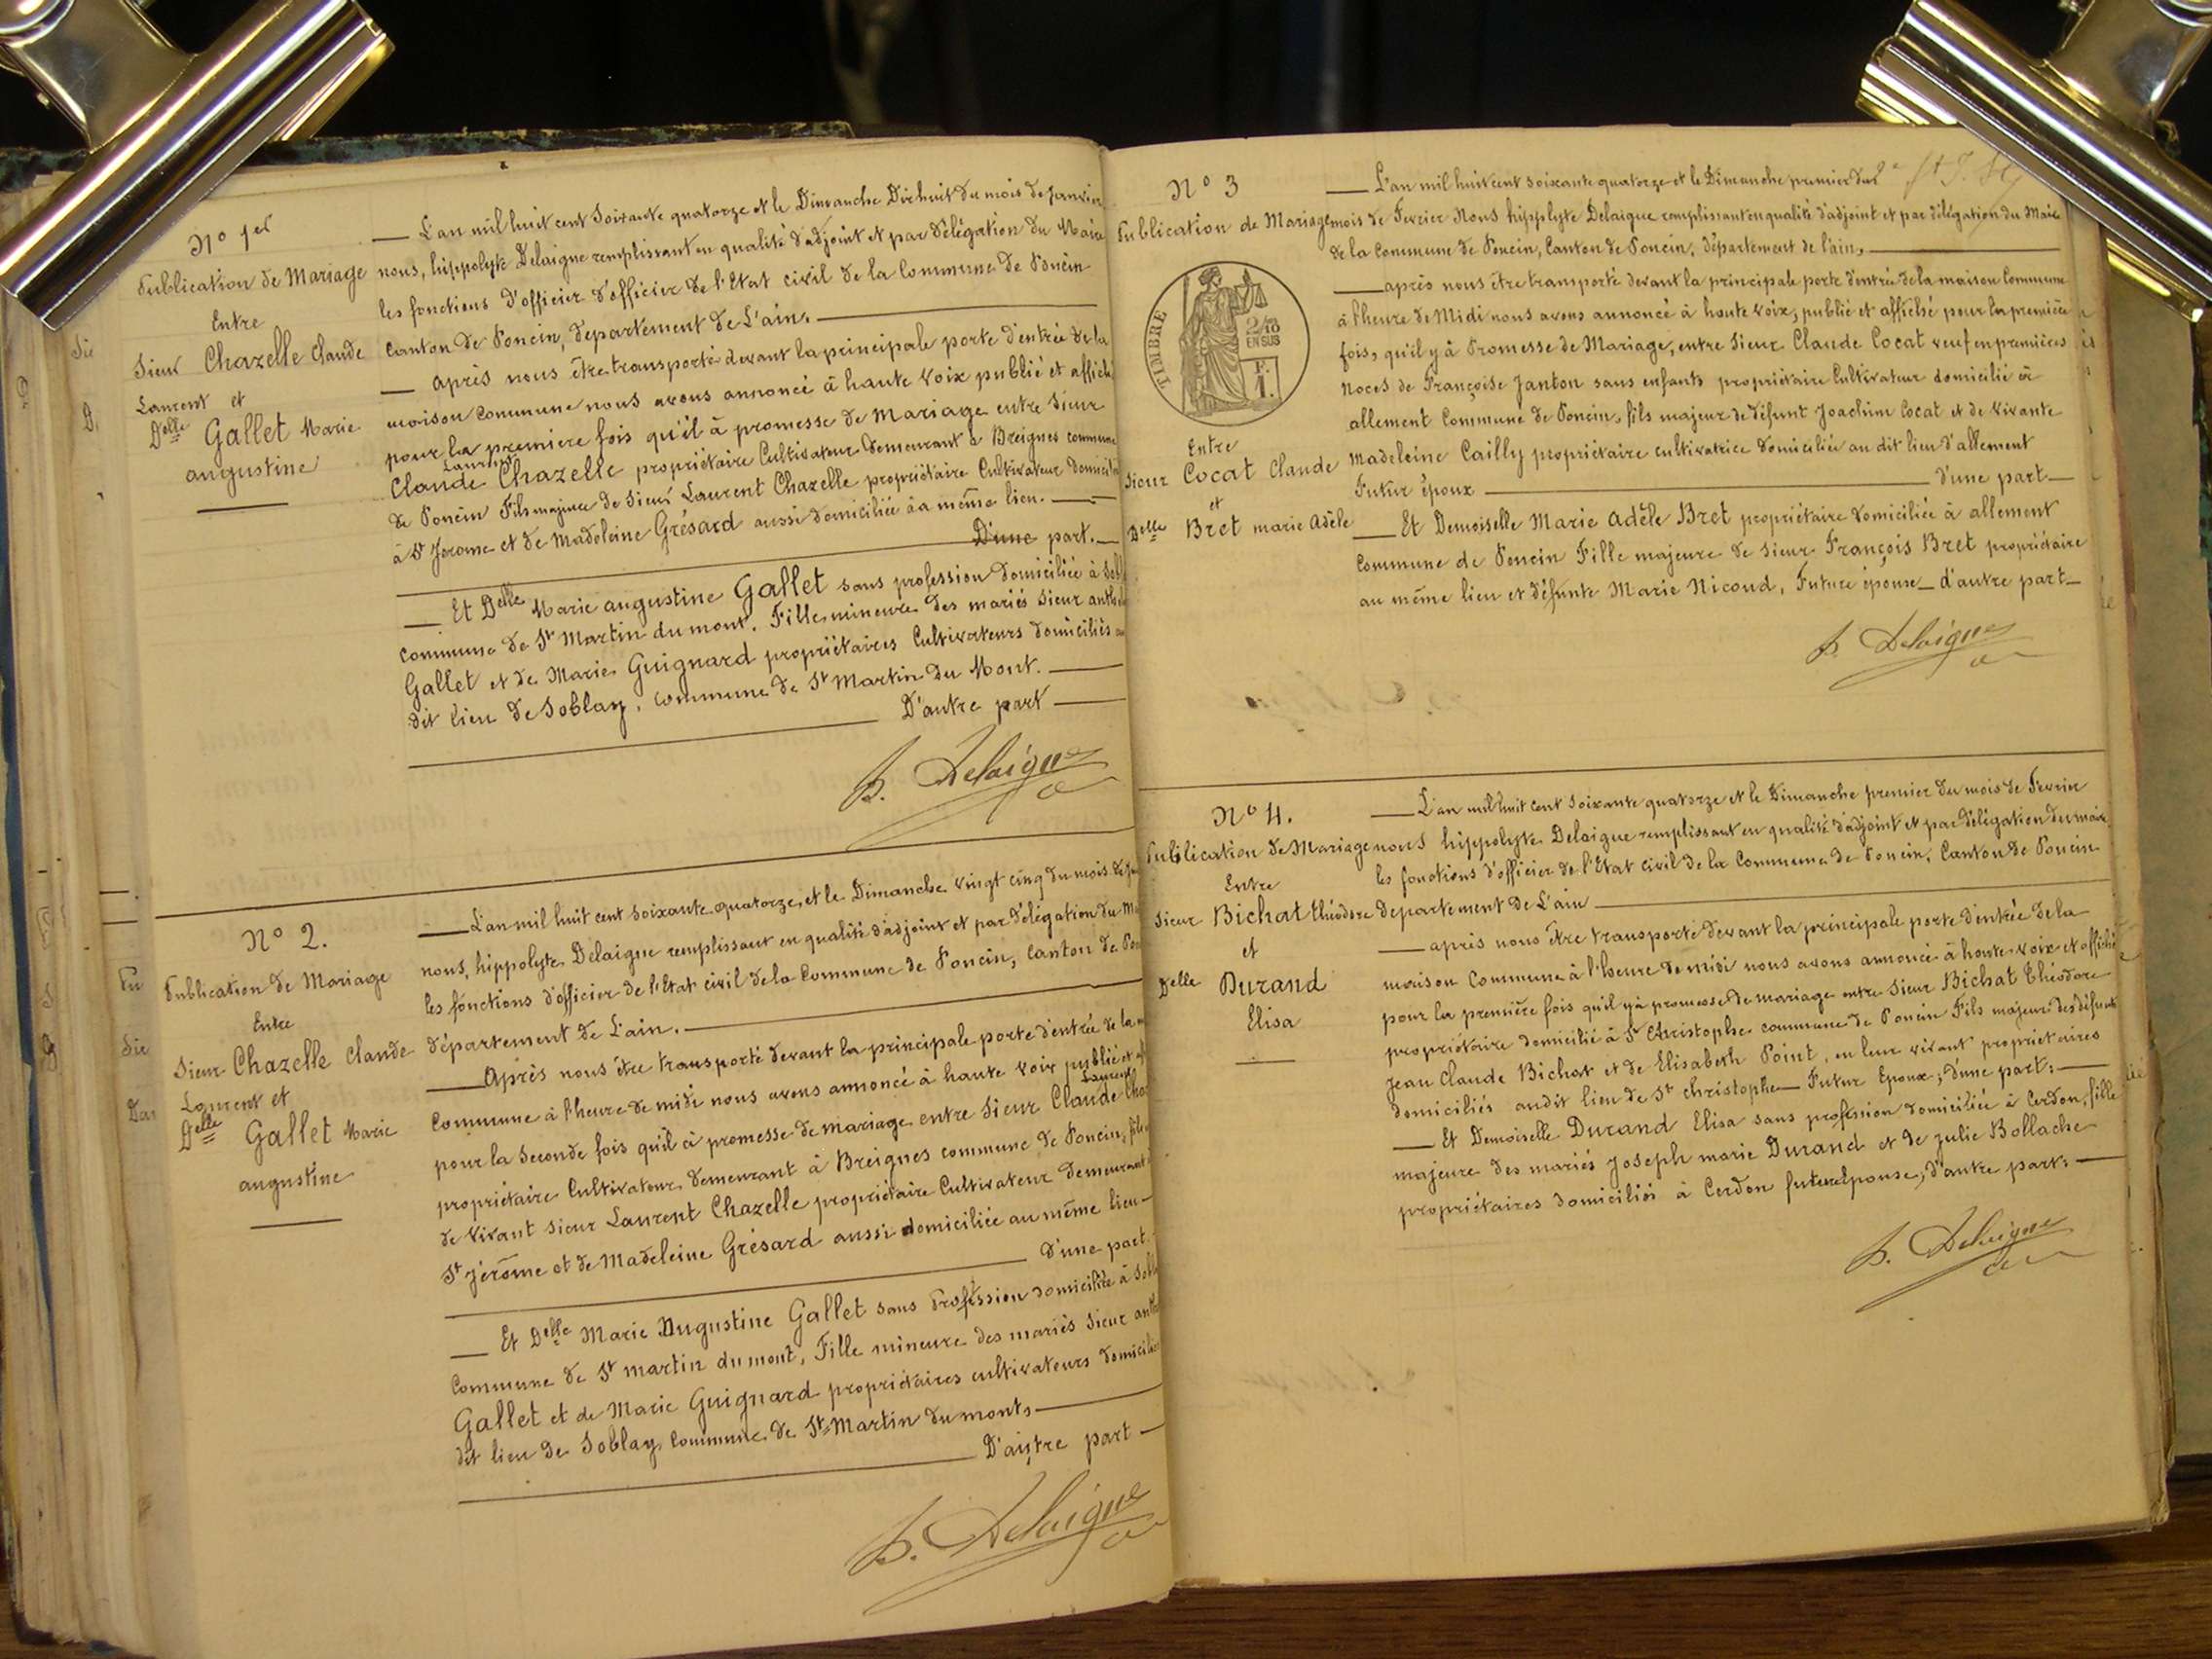 N° 1er
Publication de Mariage
Entre
Sieur Chazelle Claude
Laurent et
Delle Gallet Marie
augustine
L'an mil huit cent Soixante quatorze et le Dimanche Dix huit du mois de Janvier
nous, hippolyte Delaigue remplissant en qualité d'adjoint et par Délégation du Maire
les fonctions d'officier d'officier de l'Etat civil de la Commune de Poncin
Canton de Poncin, département de L'ain.
après nous être transporté devant la principale porte d'entrée de la
maison commune nous avons annoncé à haute voix publié et affiché
pour la premiere fois qu'il à promesse de Mariage entre Sieur
Laurent
Claude Chazelle propriétaire Cultivateur Demeurant à Breignes commune
de Poncin Fils majeur de Sieur Laurent Chazelle propriétaire Cultivateur domicilié
à St Jerome et de Madeleine Grésard aussi domiciliée au même lieu.
D'une part.
Et Delle Marie augustine Gallet sans profession Domiciliée à
commune de St Martin du mont. Fille mineure des mariés Sieur
Gallet et de Marie Guignard propriétaires Cultivateurs domiciliés au
dit lieu de Soblay, commune de St Martin du Mont.
D'autre part
h. Delaigue
N° 2.
Publication de Mariage
Entre
Sieur Chazelle Claude
Laurent et
Delle Gallet Marie
augustine
L'an mil huit cent soixante quatorze, et le Dimanche vingt cinq du mois de
nous, hippolyte Delaigue remplissant en qualité d'adjoint et par délégation du
les fonctions d'officier de l'Etat civil de la Commune de Poncin, canton de
département de L'ain.
Après nous être transporté devant la principale porte d'entrée de la
Commune à l'heure de midi nous avons annoncé à haute voix publié et
Laurent
pour la Seconde fois qu'il à promesse de mariage entre Sieur Claude
propriétaire Cultivateur demeurant à Breignes commune de Poncin, fils
de vivant Sieur Laurent Chazelle propriétaire Cultivateur demeurant
St Jérôme et de Madeleine Grésard aussi domiciliée au même lieu
d'une part.
Et Delle Marie Augustine Gallet sans Profession domiciliée à
Commune de St martin du mont, Fille mineure des mariés Sieur
Gallet et de Marie Guignard propriétaires cultivateurs domiciliés
dit lieu de Soblay, Commune de St Martin du mont,
D'autre part
h. Delaigue
N° 3
Publication de Mariage
TIMBRE
2/10
EN SUS
F.
1.
Entre
Sieur Cocat Claude
et
Delle Bret marie adèle
L'an mil huit cent soixante quatorze et le Dimanche premier du
mois de Fevrier Nous hippolyte Delaigue remplissant en qualité d'adjoint et par délégation du Maire
de la commune de Poncin, Canton de Poncin, département de l'ain,
après nous être transporté devant la principale porte d'entrée de la maison Commune
à l'heure de Midi nous avons annoncé à haute voix, publié et affiché pour la première
fois, qu'il y à Promesse de Mariage, entre Sieur Claude Cocat veuf en premières
noces de Françoise Janton sans enfants propriétaire Cultivateur domicilié à
allement Commune de Poncin, fils majeur de défunt Joachim Cocat et de vivante
Madeleine Cailly propriétaire cultivatrice domiciliée au dit lieu d'allement
Futur époux d'une part
Et Demoiselle Marie Adèle Bret propriétaire domiciliée à allement
Commune de Poncin Fille majeure de sieur François Bret propriétaire
au même lieu et défunte Marie Nicoud, Future épouse d'autre part
h. Delaigue
N° 4.
Publication de Mariage
Entre
Sieur Bichat théodore
et
Delle Durand
Elisa
L'an mil huit cent soixante quatorze et le Dimanche premier du mois de Fevrier
nous hippolyte Delaigue remplissant en qualité d'adjoint et par délégation du maire
les fonctions d'officier de l'Etat civil de la Commune de Poncin, Canton de Poncin
departement de L'ain
après nous être transporté devant la principale porte d'entrée de la
maison Commune à l'heure de midi nous avons annoncé à haute voix et affiché
pour la première fois qu'il y à promesse de mariage entre Sieur Bichat Théodore
propriétaire domicilié à St Christophe commune de Poncin Fils majeur des défunts
Jean Claude Bichat et de Elisabeth Point, en leur vivant propriétaires
domiciliés audit lieu de St christophe Futur Epoux, d'une part.
Et Demoiselle Durand Elisa sans profession domiciliée à Cerdon, fille
majeure des mariés Joseph marie Durand et de Julie Bollache
propriétaires domiciliés à Cerdon future Epouse, d'autre part.
h. Delaigue